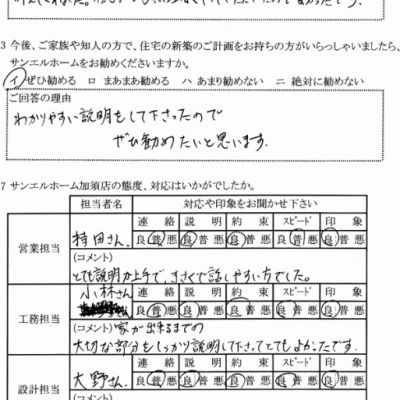 3 今後、ご家族や知人の方で、住宅の新築のご計画をお持ちの方がいらっしゃいましたら、
サンエルホームをお勧めくださいますか。
イ ぜひ勧める ロ まあまあ勧める ハ あまり勧めない ニ 絶対に勧めない
ご回答の理由
わかりやすい説明をして下さったので
ぜひ勧めたいと思います.
7 サンエルホーム加須店の態度、対応はいかがでしたか。
担当者名 対応や印象をお聞かせ下さい
営業担当 持田さん. 連絡 説明 約束 スピード 印象
良 普 悪 良 普 悪 良 普 悪 良 普 悪 良 普 悪
(コメント)
とても説明が上手で、きさくで話しやすい方でした。
工務担当 小林さん 連絡 説明 約束 スピード 印象
良 普 悪 良 普 悪 良 普 悪 良 普 悪 良 普 悪
(コメント) 家が出来るまでの
大切な部分をしっかり説明して下さってとてもよかったです.
設計担当 大野さん. 連絡 説明 約束 スピード 印象
良 普 悪 良 普 悪 良 普 悪 良 普 悪 良 普 悪
(コメント)